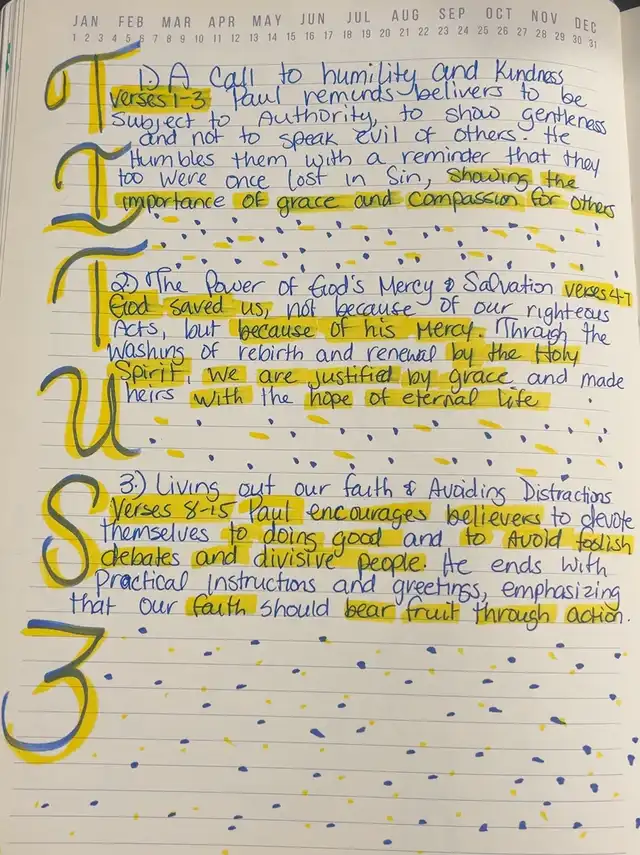 JAN FEB MAR APR MAY JUN JUL AUG SEP OCT NOV DEC
1 2 3 4 5 6 7 8 9 10 11 12 13 14 15 16 17 18 19 20 21 22 23 24 25 26 27 28 29 30 31
TITUS 3
1.) A Call to humility and Kindness
verses 1-3 Paul reminds belivers to be
Subject to Authority, to show gentleness
and not to speak evil of others. He
Humbles them with a reminder that they
too were once lost in Sin, showing the
importance of grace and compassion for others
2.) The Power of God's Mercy & Salvation verses 4-7
God saved us, not because of our righteous
Acts, but because of his Mercy. Through the
washing of rebirth and renewal by the Holy
Spirit, we are justified by grace and made
heirs with the hope of eternal life
3.) Living out our faith & Avoiding Distractions
Verses 8-15 Paul encourages believers to devote
themselves to doing good and to Avoid foolish
debates and divisive people. He ends with
practical instructions and greetings, emphasizing
that our faith should bear fruit through action.